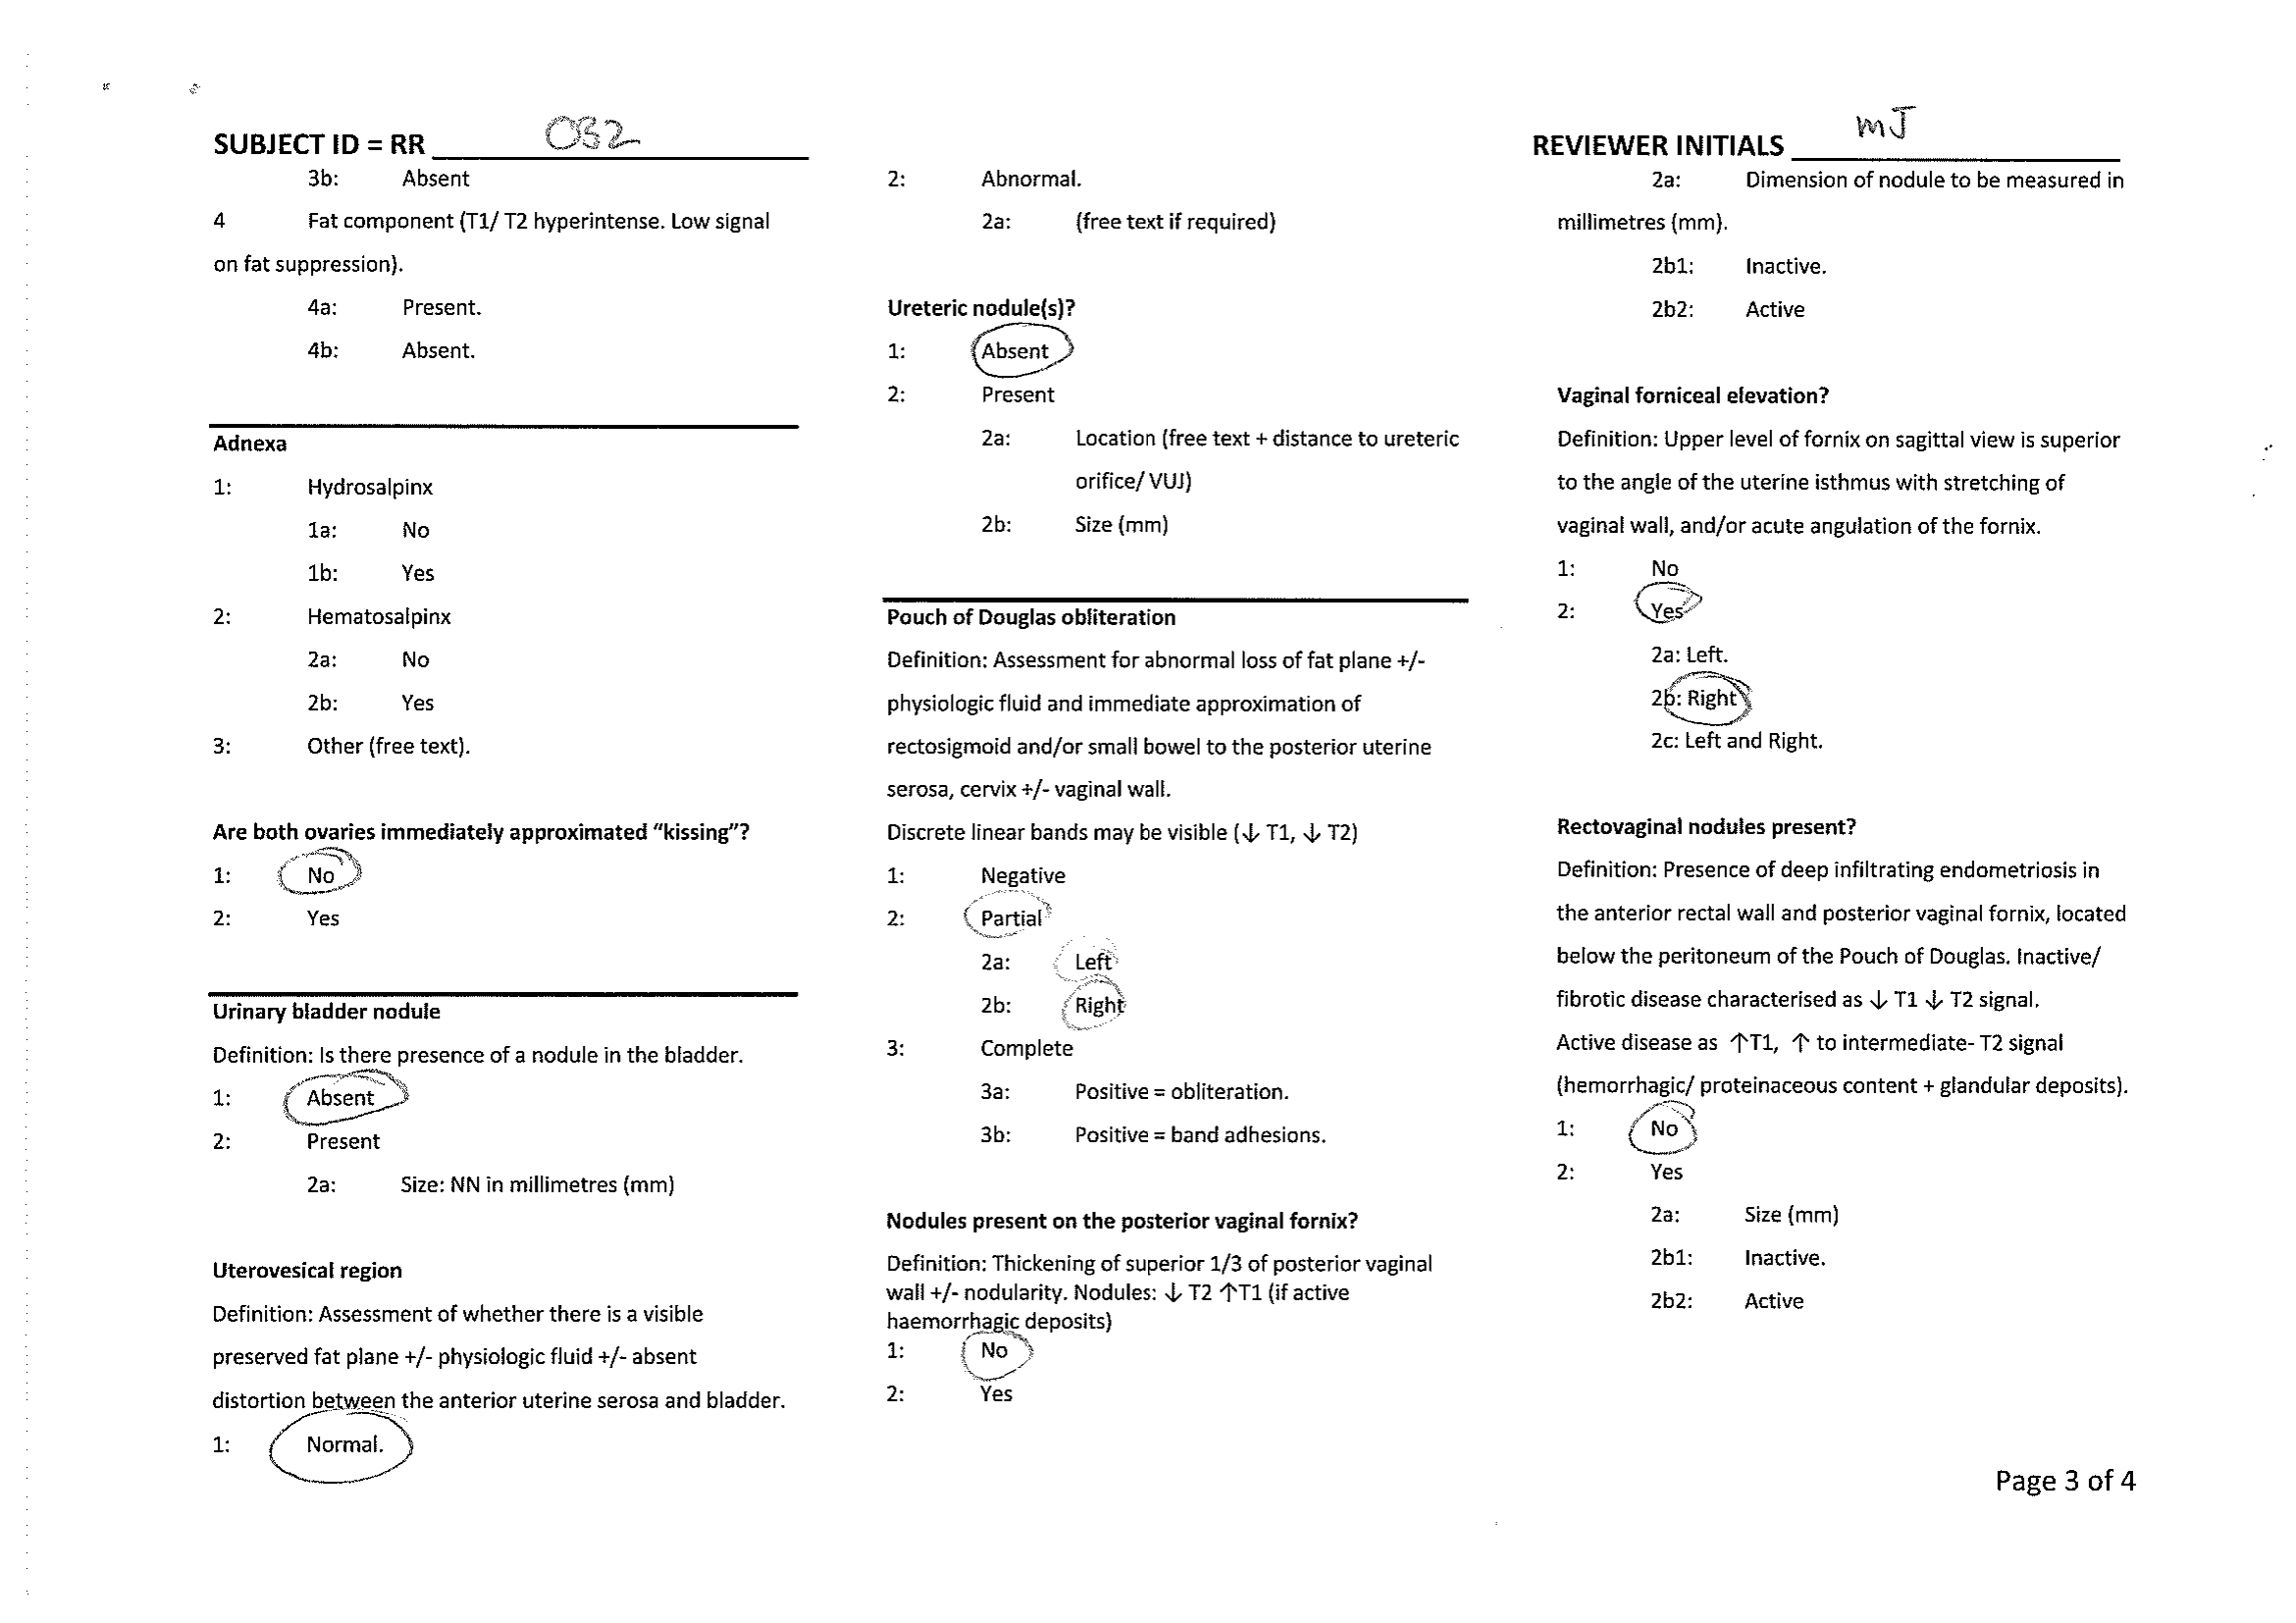 SUBJECT ID = RR 032
3b: Absent
4 Fat component (T1/ T2 hyperintense. Low signal
on fat suppression).
4a: Present.
4b: Absent.
Adnexa
1: Hydrosalpinx
1a: No
1b: Yes
2: Hematosalpinx
2a: No
2b: Yes
3: Other (free text).
Are both ovaries immediately approximated “kissing”?
1: No
2: Yes
Urinary bladder nodule
Definition: Is there presence of a nodule in the bladder.
1: Absent
2: Present
2a: Size: NN in millimetres (mm)
Uterovesical region
Definition: Assessment of whether there is a visible
preserved fat plane +/- physiologic fluid +/- absent
distortion between the anterior uterine serosa and bladder.
1: Normal.
2: Abnormal.
2a: (free text if required)
Ureteric nodule(s)?
1: Absent
2: Present
2a: Location (free text + distance to ureteric
orifice/ VUJ)
2b: Size (mm)
Pouch of Douglas obliteration
Definition: Assessment for abnormal loss of fat plane +/-
physiologic fluid and immediate approximation of
rectosigmoid and/or small bowel to the posterior uterine
serosa, cervix +/- vaginal wall.
Discrete linear bands may be visible (↓ T1, ↓ T2)
1: Negative
2: Partial
2a: Left
2b: Right
3: Complete
3a: Positive = obliteration.
3b: Positive = band adhesions.
Nodules present on the posterior vaginal fornix?
Definition: Thickening of superior 1/3 of posterior vaginal
wall +/- nodularity. Nodules: ↓ T2 ↑T1 (if active
haemorrhagic deposits)
1: No
2: Yes
REVIEWER INITIALS MJ
2a: Dimension of nodule to be measured in
millimetres (mm).
2b1: Inactive.
2b2: Active
Vaginal forniceal elevation?
Definition: Upper level of fornix on sagittal view is superior
to the angle of the uterine isthmus with stretching of
vaginal wall, and/or acute angulation of the fornix.
1: No
2: Yes
2a: Left.
2b: Right
2c: Left and Right.
Rectovaginal nodules present?
Definition: Presence of deep infiltrating endometriosis in
the anterior rectal wall and posterior vaginal fornix, located
below the peritoneum of the Pouch of Douglas. Inactive/
fibrotic disease characterised as ↓ T1 ↓ T2 signal.
Active disease as ↑T1, ↑ to intermediate- T2 signal
(hemorrhagic/ proteinaceous content + glandular deposits).
1: No
2: Yes
2a: Size (mm)
2b1: Inactive.
2b2: Active
Page 3 of 4